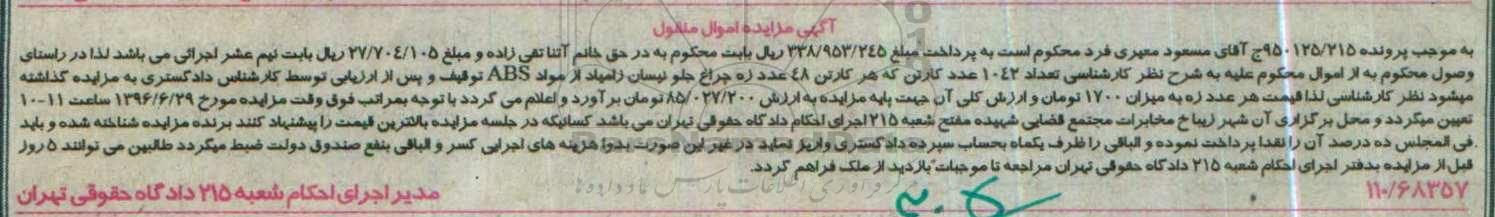 آگهی مزایده اموال منقول
به موجب پرونده ۹۵۰۱۲۵/۲۱۵ج آقای مسعود معیری فرد محکوم است به پرداخت مبلغ ۳۳۸/۹۵۳/۲۴۵ ریال بابت محکوم به در حق خانم آتنا تقی زاده و مبلغ ۲۷/۷۰۴/۱۰۵ ریال بابت نیم عشر اجرائی می باشد لذا در راستای
وصول محکوم به از اموال محکوم علیه به شرح نظر کارشناسی تعداد ۱۰۴۲ عدد کارتن که هر کارتن ۴۸ عدد زه چراغ جلو نیسان زامیاد از مواد ABS توقیف و پس از ارزیابی توسط کارشناس دادگستری به مزایده گذاشته
میشود نظر کارشناسی لذا قیمت هر عدد زه به میزان ۱۷۰۰ تومان و ارزش کلی آن جهت پایه مزایده به ارزش ۸۵/۰۲۷/۲۰۰ تومان برآورد و اعلام می گردد با توجه بمراتب فوق وقت مزایده مورخ ۱۳۹۶/۶/۲۹ ساعت ۱۱-۱۰
تعیین میگردد و محل برگزاری آن شهر زیبا خ مخابرات مجتمع قضایی شهیده مفتح شعبه ۲۱۵ اجرای احکام دادگاه حقوقی تهران می باشد کسانیکه در جلسه مزایده بالاترین قیمت را پیشنهاد کنند برنده مزایده شناخته شده و باید
فی المجلس ده درصد آن را نقدا پرداخت نموده و الباقی را ظرف یکماه بحساب سپرده دادگستری واریز نماید در غیر این صورت بدوا هزینه های اجرایی کسر و الباقی بنفع صندوق دولت ضبط میگردد طالبین می توانند ۵ روز
قبل از مزایده بدفتر اجرای احکام شعبه ۲۱۵ دادگاه حقوقی تهران مراجعه تا موجبات بازدید از ملک فراهم گردد.
۱۱۰/۶۸۳۵۷
مدیر اجرای احکام شعبه ۲۱۵ دادگاه حقوقی تهران